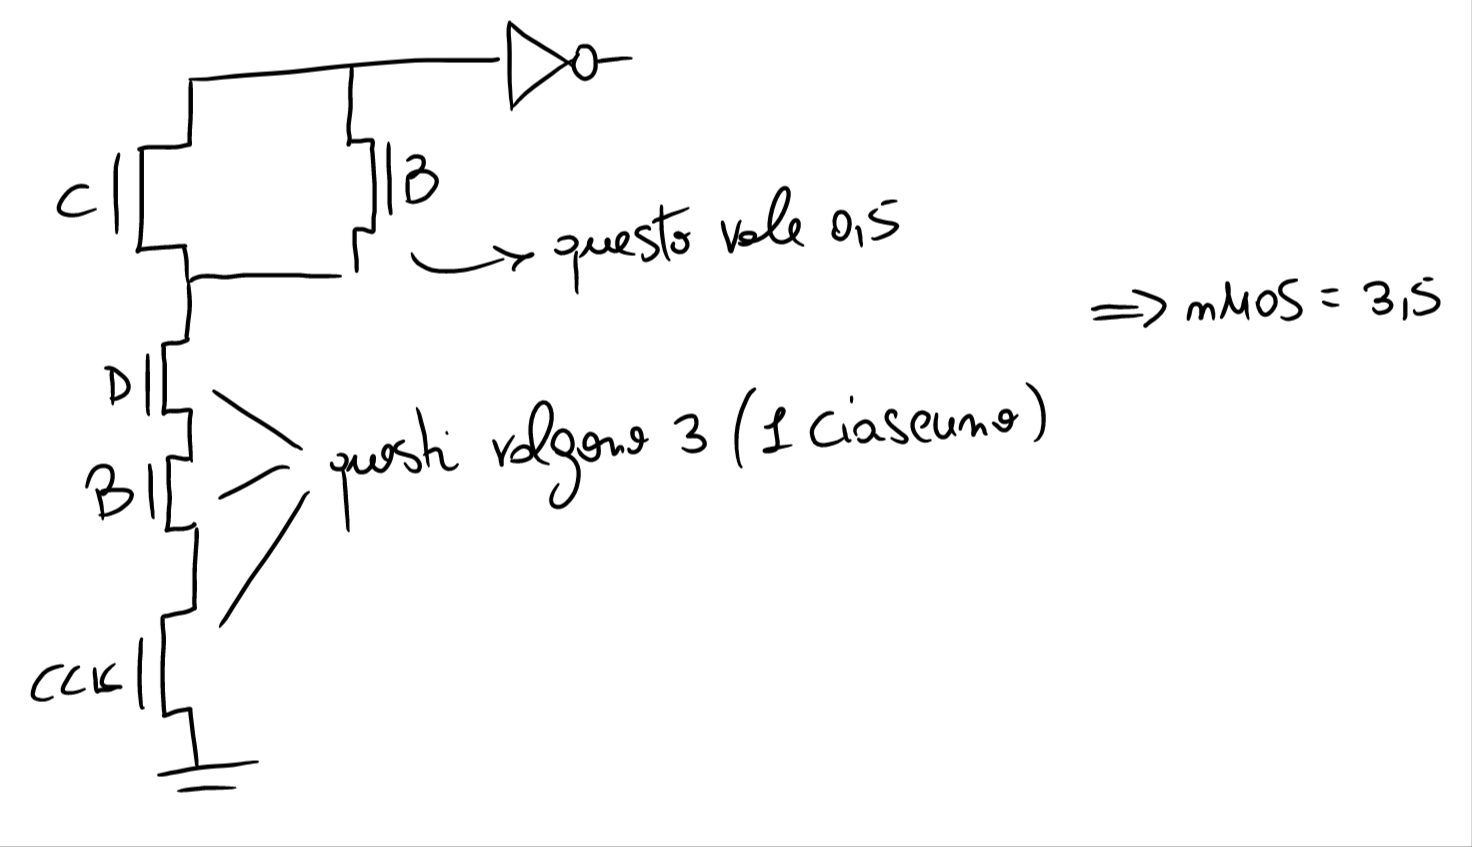 C
B
questo vale 0,5
=> nMOS = 3,5
D
questi valgono 3 (1 ciascuno)
B
CCK